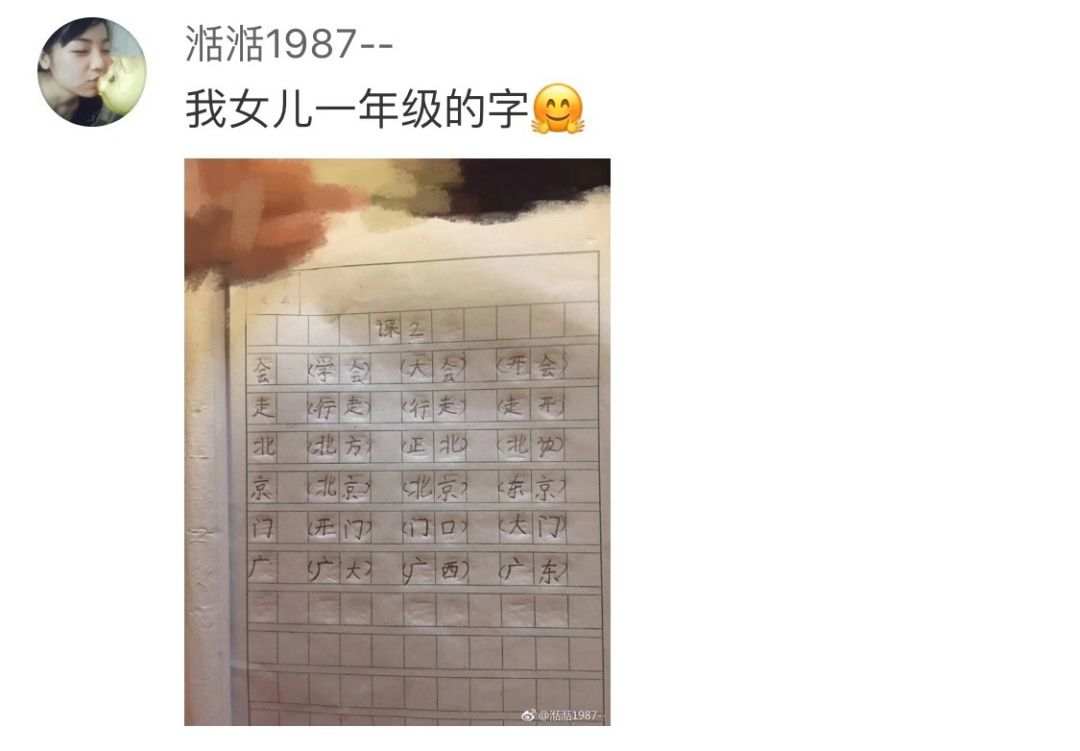 湉湉1987--
我女儿一年级的字🤗
课2
会 (学会) (大会) (开会)
走 (行走) (行走) (走开)
北 (北方) (正北) (北边)
京 (北京) (北京) (东京)
门 (开门) (门口) (大门)
广 (广大) (广西) (广东)
@湉湉1987--